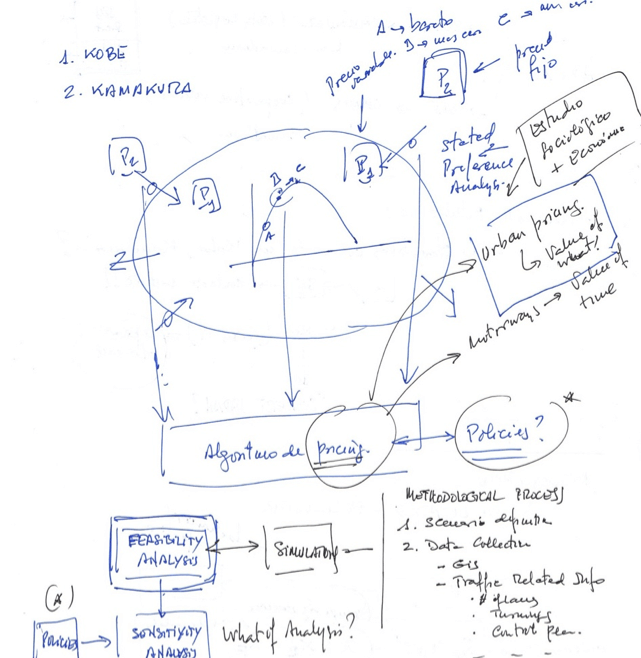 A → barato
B → mas caro
C →
1. KOBE
2. KAMAKURA
Precio variable.
P2
precio fijo
Estudio
Sociológico
+ Económico
stated
Preference
Analysis.
P2
P1
P1
B
C
A
Z
Urban pricing.
↳ Value of
what?
Motorways → Value of
time
Algoritmo de pricing.
Policies?
*
METHODOLOGICAL PROCESS
1. Scenario definition
2. Data Collection
- GIS
- Traffic Related Info
Turnings
Control plan.
FEASIBILITY
ANALYSIS
SIMULATION
(*)
POLICIES
SENSITIVITY
ANALYSIS
What if Analysis?